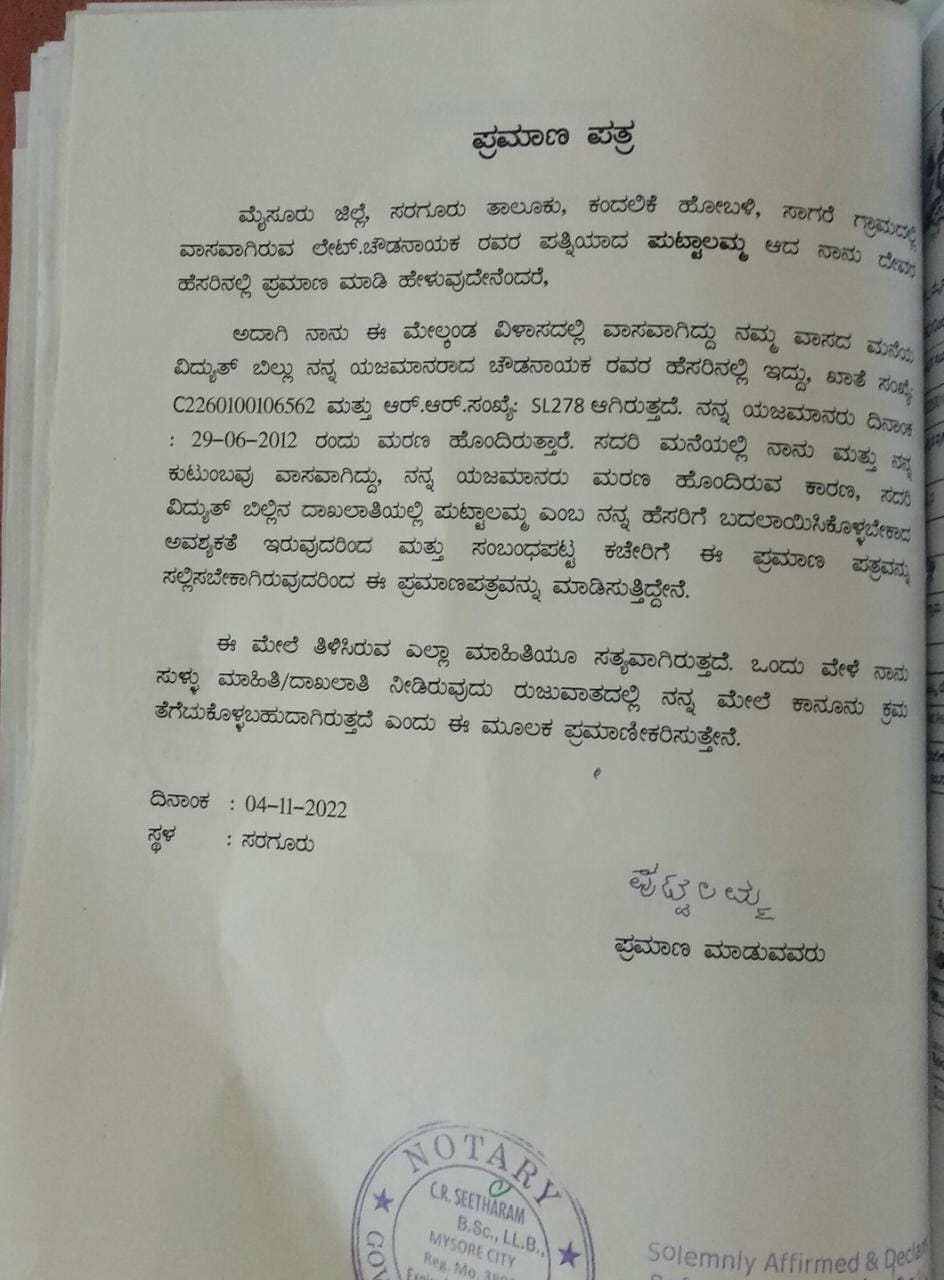 ಪ್ರಮಾಣ ಪತ್ರ
ಮೈಸೂರು ಜಿಲ್ಲೆ, ಸರಗೂರು ತಾಲೂಕು, ಕಂದಲಿಕೆ ಹೋಬಳಿ, ಸಾಗರೆ ಗ್ರಾಮದಲ್ಲಿ
ವಾಸವಾಗಿರುವ ಲೇಟ್.ಚೌಡನಾಯಕ ರವರ ಪತ್ನಿಯಾದ ಪುಟ್ಟಾಲಮ್ಮ ಆದ ನಾನು ದೇವರ
ಹೆಸರಿನಲ್ಲಿ ಪ್ರಮಾಣ ಮಾಡಿ ಹೇಳುವುದೇನೆಂದರೆ,
ಅದಾಗಿ ನಾನು ಈ ಮೇಲ್ಕಂಡ ವಿಳಾಸದಲ್ಲಿ ವಾಸವಾಗಿದ್ದು ನಮ್ಮ ವಾಸದ ಮನೆಯ
ವಿದ್ಯುತ್ ಬಿಲ್ಲು ನನ್ನ ಯಜಮಾನರಾದ ಚೌಡನಾಯಕ ರವರ ಹೆಸರಿನಲ್ಲಿ ಇದ್ದು, ಖಾತೆ ಸಂಖ್ಯೆ
C2260100106562 ಮತ್ತು ಆರ್.ಆರ್.ಸಂಖ್ಯೆ: SL278 ಆಗಿರುತ್ತದೆ. ನನ್ನ ಯಜಮಾನರು ದಿನಾಂಕ
: 29-06-2012 ರಂದು ಮರಣ ಹೊಂದಿರುತ್ತಾರೆ. ಸದರಿ ಮನೆಯಲ್ಲಿ ನಾನು ಮತ್ತು ನನ್ನ
ಕುಟುಂಬವು ವಾಸವಾಗಿದ್ದು, ನನ್ನ ಯಜಮಾನರು ಮರಣ ಹೊಂದಿರುವ ಕಾರಣ, ಸದರಿ
ವಿದ್ಯುತ್ ಬಿಲ್ಲಿನ ದಾಖಲಾತಿಯಲ್ಲಿ ಪುಟ್ಟಾಲಮ್ಮ ಎಂಬ ನನ್ನ ಹೆಸರಿಗೆ ಬದಲಾಯಿಸಿಕೊಳ್ಳಬೇಕಾದ
ಅವಶ್ಯಕತೆ ಇರುವುದರಿಂದ ಮತ್ತು ಸಂಬಂಧಪಟ್ಟ ಕಚೇರಿಗೆ ಈ ಪ್ರಮಾಣ ಪತ್ರವನ್ನು
ಸಲ್ಲಿಸಬೇಕಾಗಿರುವುದರಿಂದ ಈ ಪ್ರಮಾಣಪತ್ರವನ್ನು ಮಾಡಿಸುತ್ತಿದ್ದೇನೆ.
ಈ ಮೇಲೆ ತಿಳಿಸಿರುವ ಎಲ್ಲಾ ಮಾಹಿತಿಯೂ ಸತ್ಯವಾಗಿರುತ್ತದೆ. ಒಂದು ವೇಳೆ ನಾನು
ಸುಳ್ಳು ಮಾಹಿತಿ/ದಾಖಲಾತಿ ನೀಡಿರುವುದು ರುಜುವಾತದಲ್ಲಿ ನನ್ನ ಮೇಲೆ ಕಾನೂನು ಕ್ರಮ
ತೆಗೆದುಕೊಳ್ಳಬಹುದಾಗಿರುತ್ತದೆ ಎಂದು ಈ ಮೂಲಕ ಪ್ರಮಾಣೀಕರಿಸುತ್ತೇನೆ.
ದಿನಾಂಕ : 04-11-2022
ಸ್ಥಳ : ಸರಗೂರು
ಪುಟ್ಟಲಮ್ಮ
ಪ್ರಮಾಣ ಮಾಡುವವರು
NOTARY
C.R. SEETHARAM
B.Sc., LL.B.,
MYSORE CITY
Reg. No.
Solemnly Affirmed &